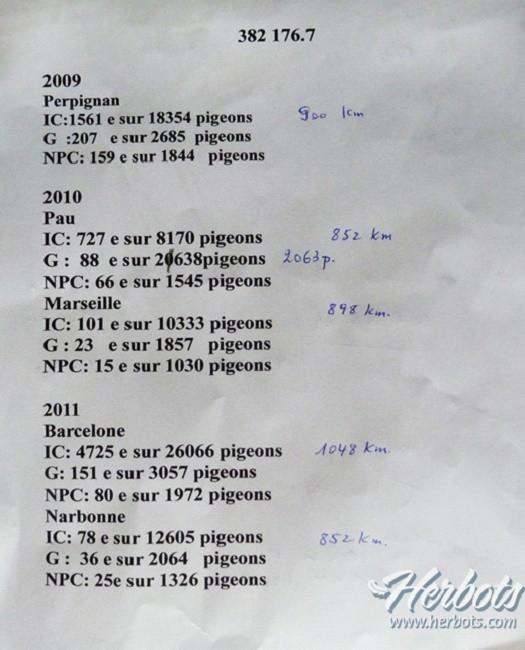 382 176.7
2009
Perpignan
IC:1561 e sur 18354 pigeons 900 km
G :207 e sur 2685 pigeons
NPC: 159 e sur 1844 pigeons
2010
Pau
IC: 727 e sur 8170 pigeons 852 km
G : 88 e sur 20638pigeons 2063p.
NPC: 66 e sur 1545 pigeons
Marseille 898 km.
IC: 101 e sur 10333 pigeons
G : 23 e sur 1857 pigeons
NPC: 15 e sur 1030 pigeons
2011
Barcelone
IC: 4725 e sur 26066 pigeons 1048 km.
G: 151 e sur 3057 pigeons
NPC: 80 e sur 1972 pigeons
Narbonne
IC: 78 e sur 12605 pigeons 852 km.
G : 36 e sur 2064 pigeons
NPC: 25e sur 1326 pigeons
Herbots
www.herbots.com